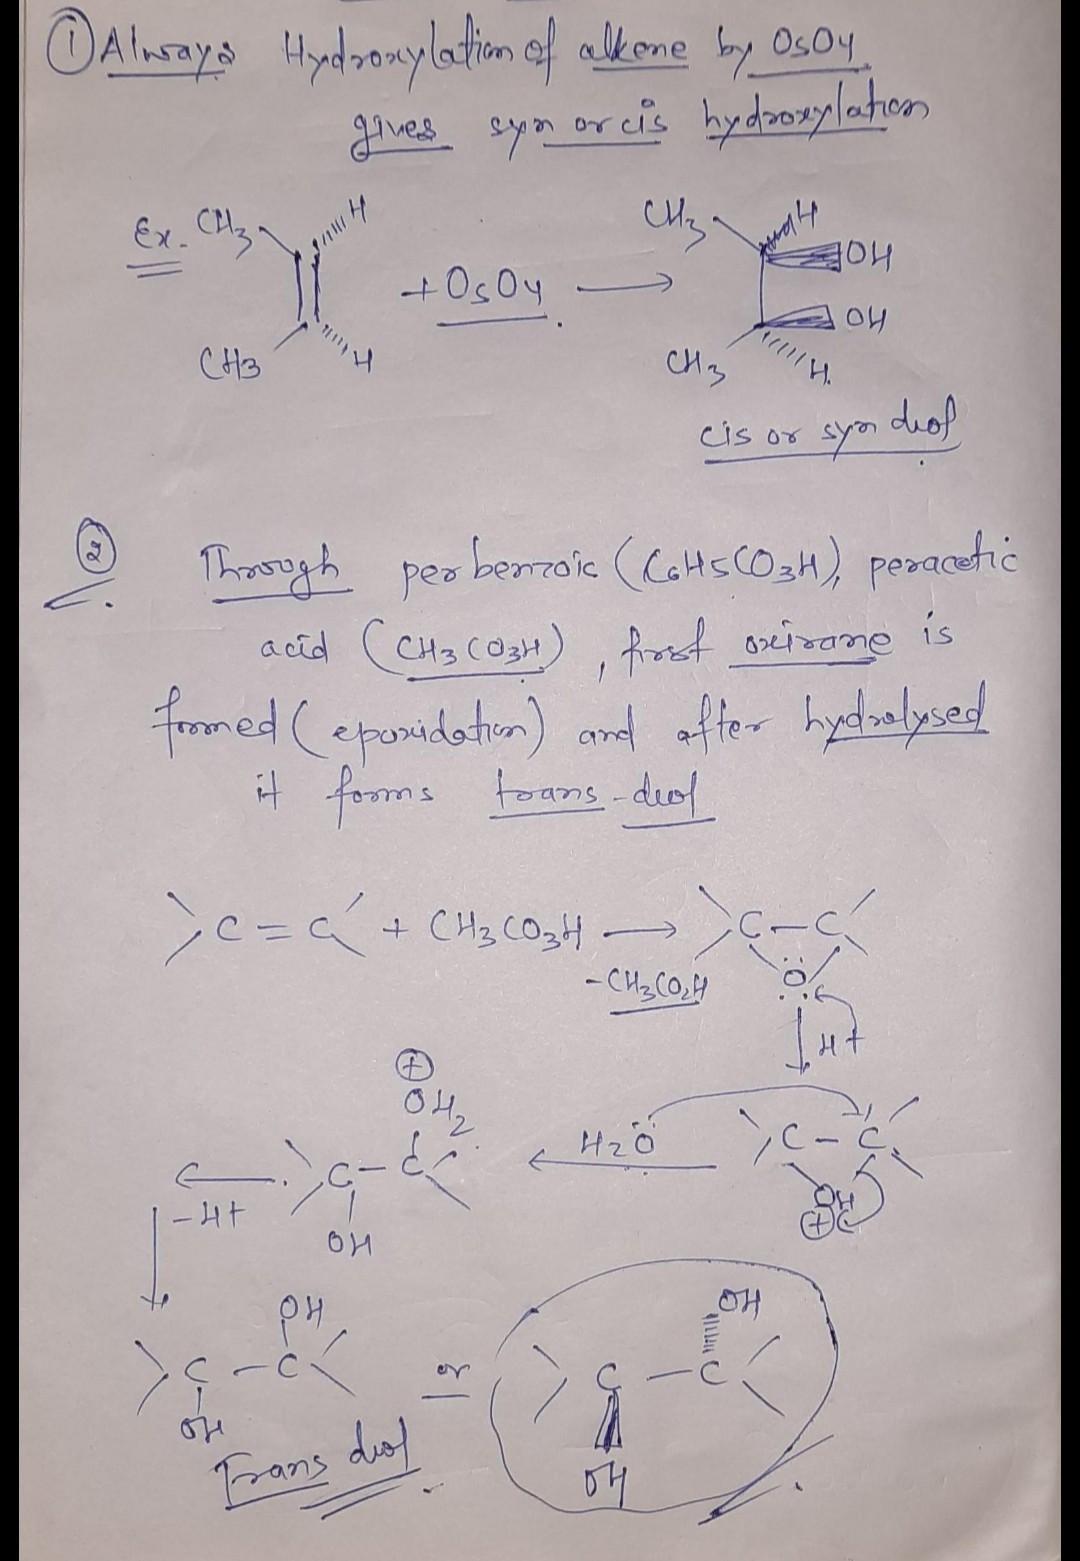 ① Always Hydroxylation of alkene by OsO4
gives syn or cis hydroxylation
Ex. CH3 H
CH3 H
+ OsO4 →
CH3 H
OH
OH
CH3 H.
cis or syn diol
② Through perbenzoic (C6H5CO3H), peracetic
acid (CH3CO3H), first oxirane is
formed (epoxidation) and after hydrolysed
it forms trans-diol
C=C + CH3CO3H → C-C
-CH3CO2H Ö
↓ H+
⊕
OH2
C-C
OH
← H2Ö
C-C
OH
⊕
-H+
OH
C-C
OH
Trans diol
or
OH
C-C
OH